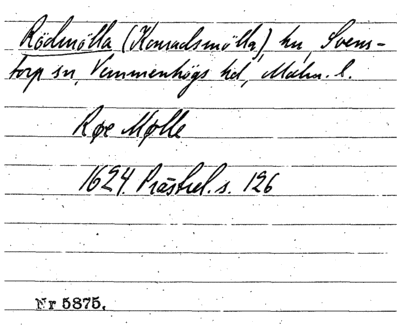 Rödmölla (Konradsmölla) hn, Svens-
torp sn, Vemmenhögs hd, Malm. l.
Røe Mølle
1624 Prästrel. s. 126
Nr 5875.